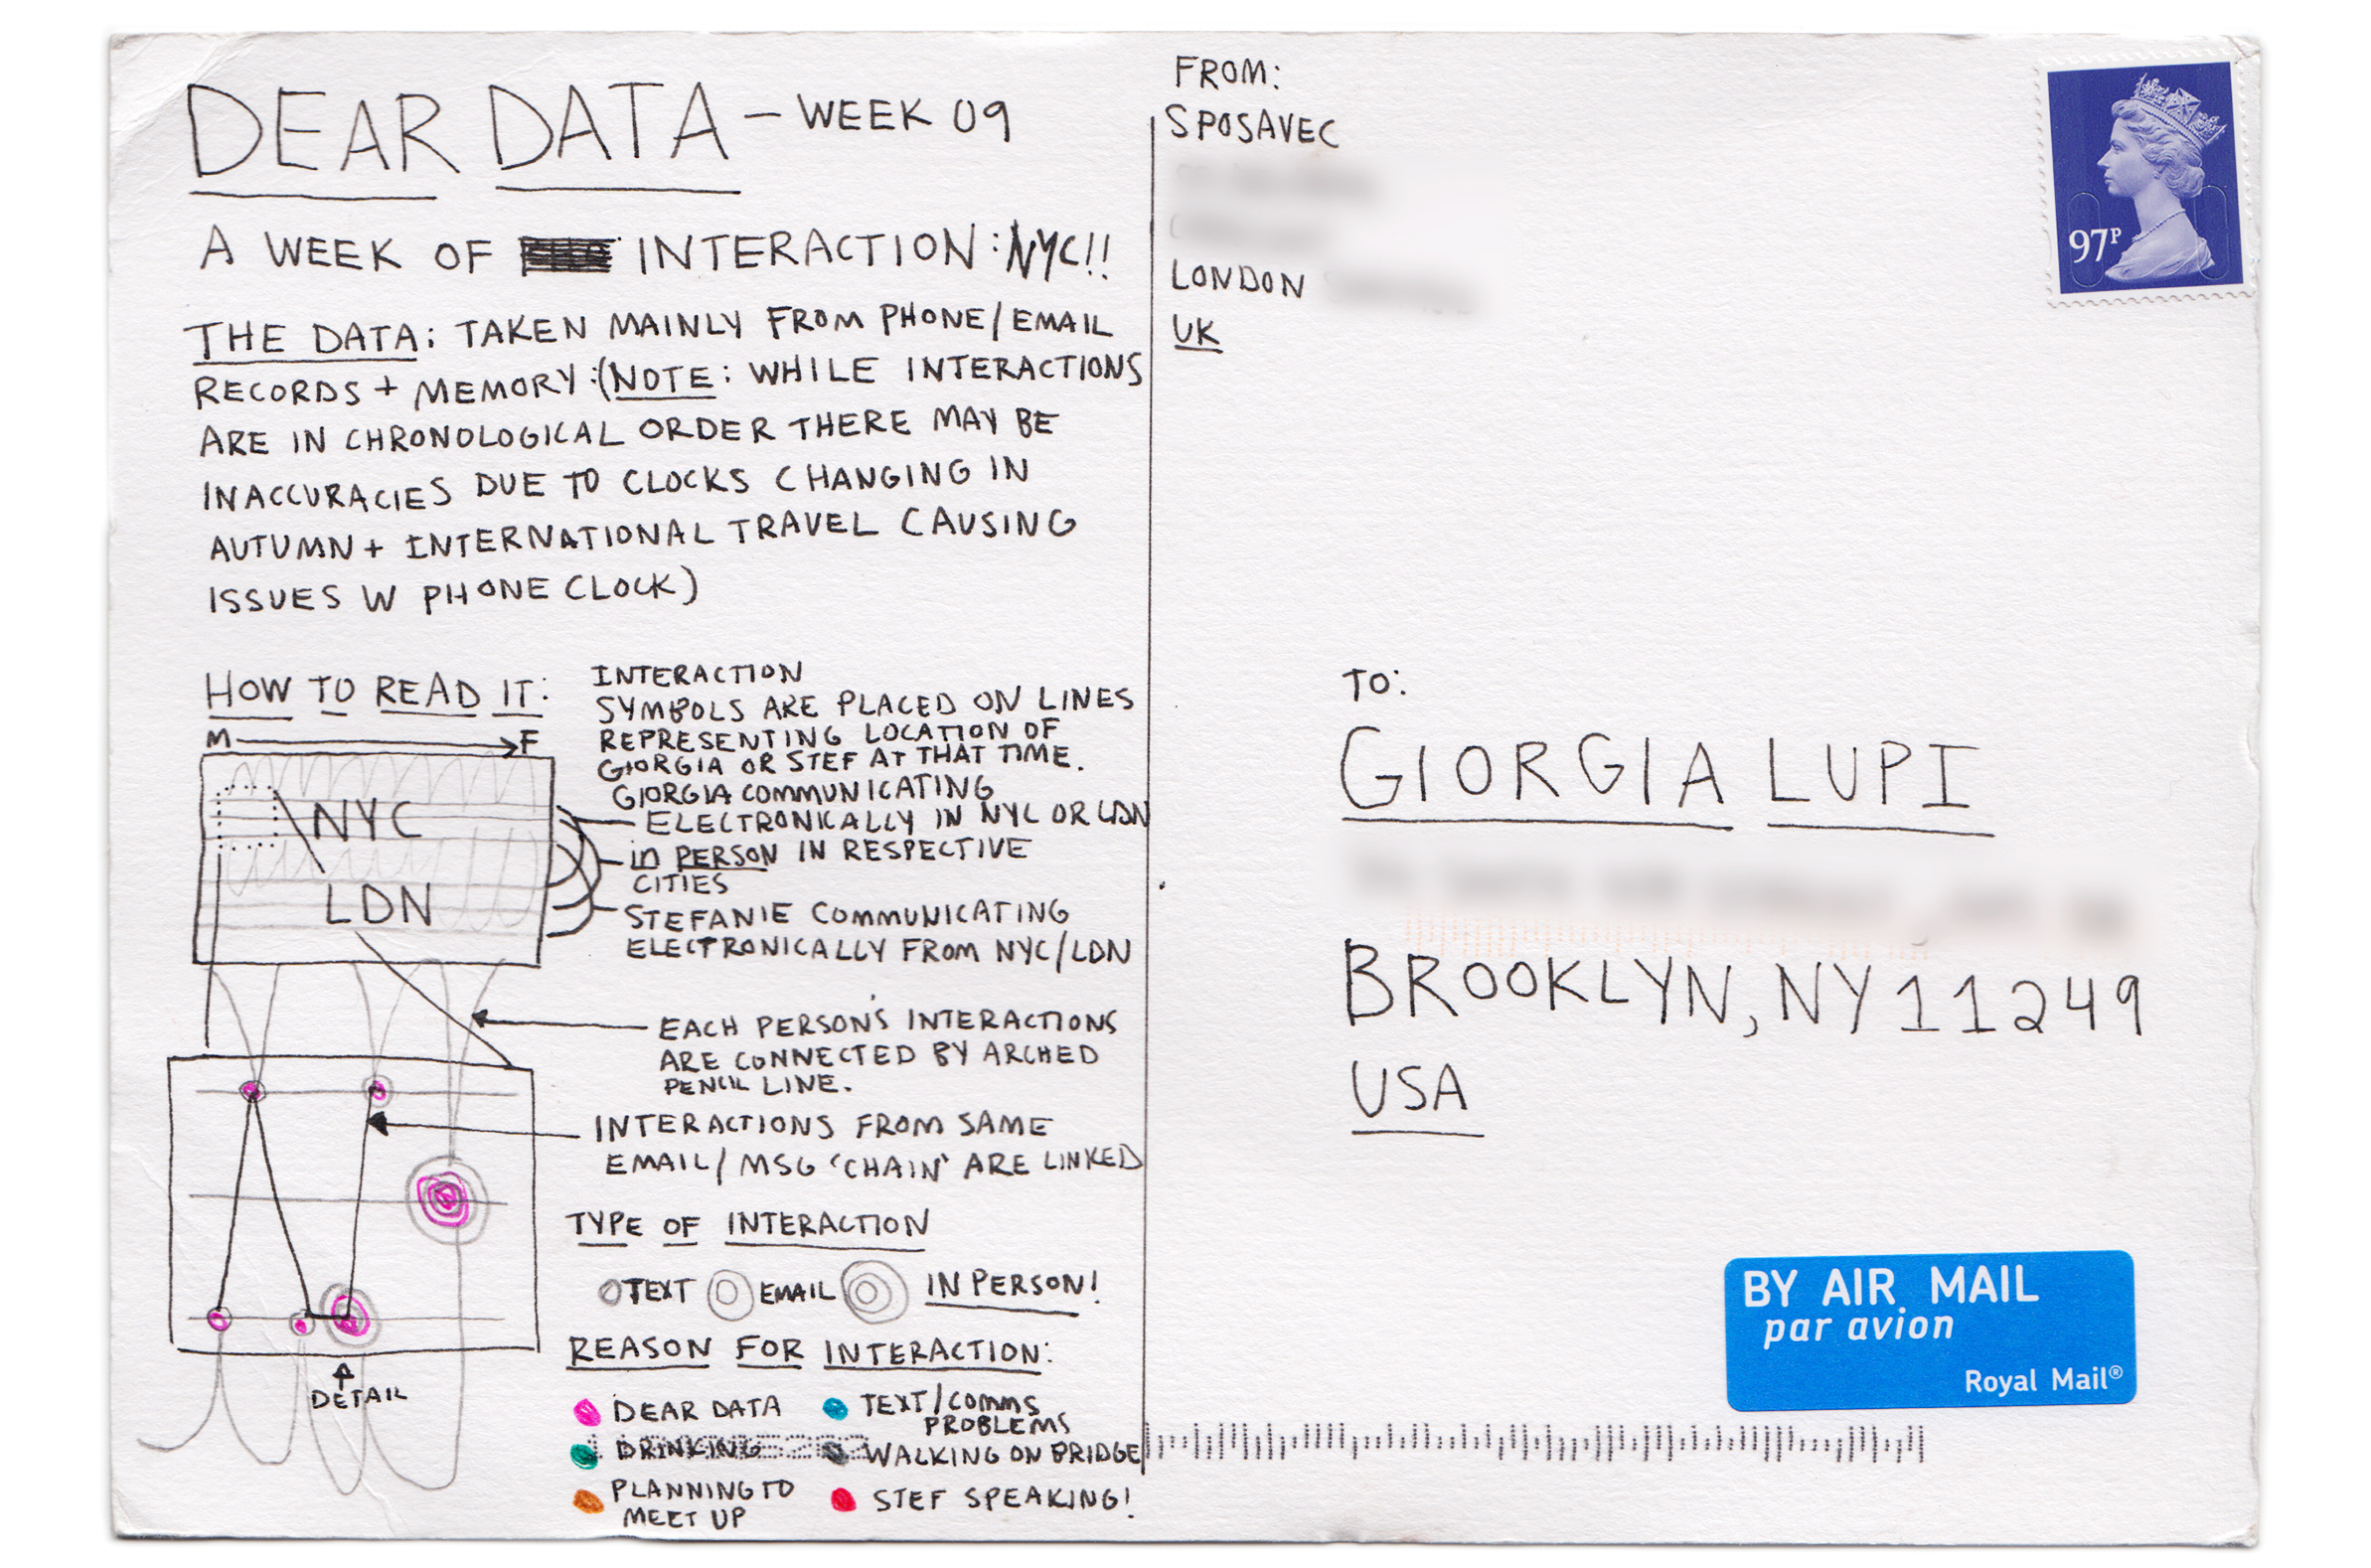 DEAR DATA – WEEK 09
A WEEK OF INTERACTION: NYC!!
THE DATA: TAKEN MAINLY FROM PHONE/EMAIL
RECORDS + MEMORY: (NOTE: WHILE INTERACTIONS
ARE IN CHRONOLOGICAL ORDER THERE MAY BE
INACCURACIES DUE TO CLOCKS CHANGING IN
AUTUMN + INTERNATIONAL TRAVEL CAUSING
ISSUES W PHONE CLOCK)
HOW TO READ IT:
M F
NYC
LDN
INTERACTION
SYMBOLS ARE PLACED ON LINES
REPRESENTING LOCATION OF
GIORGIA OR STEF AT THAT TIME.
GIORGIA COMMUNICATING
ELECTRONICALLY IN NYC OR LDN
IN PERSON IN RESPECTIVE
CITIES
STEFANIE COMMUNICATING
ELECTRONICALLY FROM NYC/LDN
EACH PERSON'S INTERACTIONS
ARE CONNECTED BY ARCHED
PENCIL LINE.
INTERACTIONS FROM SAME
EMAIL/MSG 'CHAIN' ARE LINKED
DETAIL
TYPE OF INTERACTION
TEXT EMAIL IN PERSON!
REASON FOR INTERACTION:
DEAR DATA
DRINKING
PLANNING TO
MEET UP
TEXT/COMMS
PROBLEMS
WALKING ON BRIDGE
STEF SPEAKING!
FROM:
SPOSAVEC
LONDON
UK
97P
TO:
GIORGIA LUPI
BROOKLYN, NY 11249
USA
BY AIR MAIL
par avion
Royal Mail®